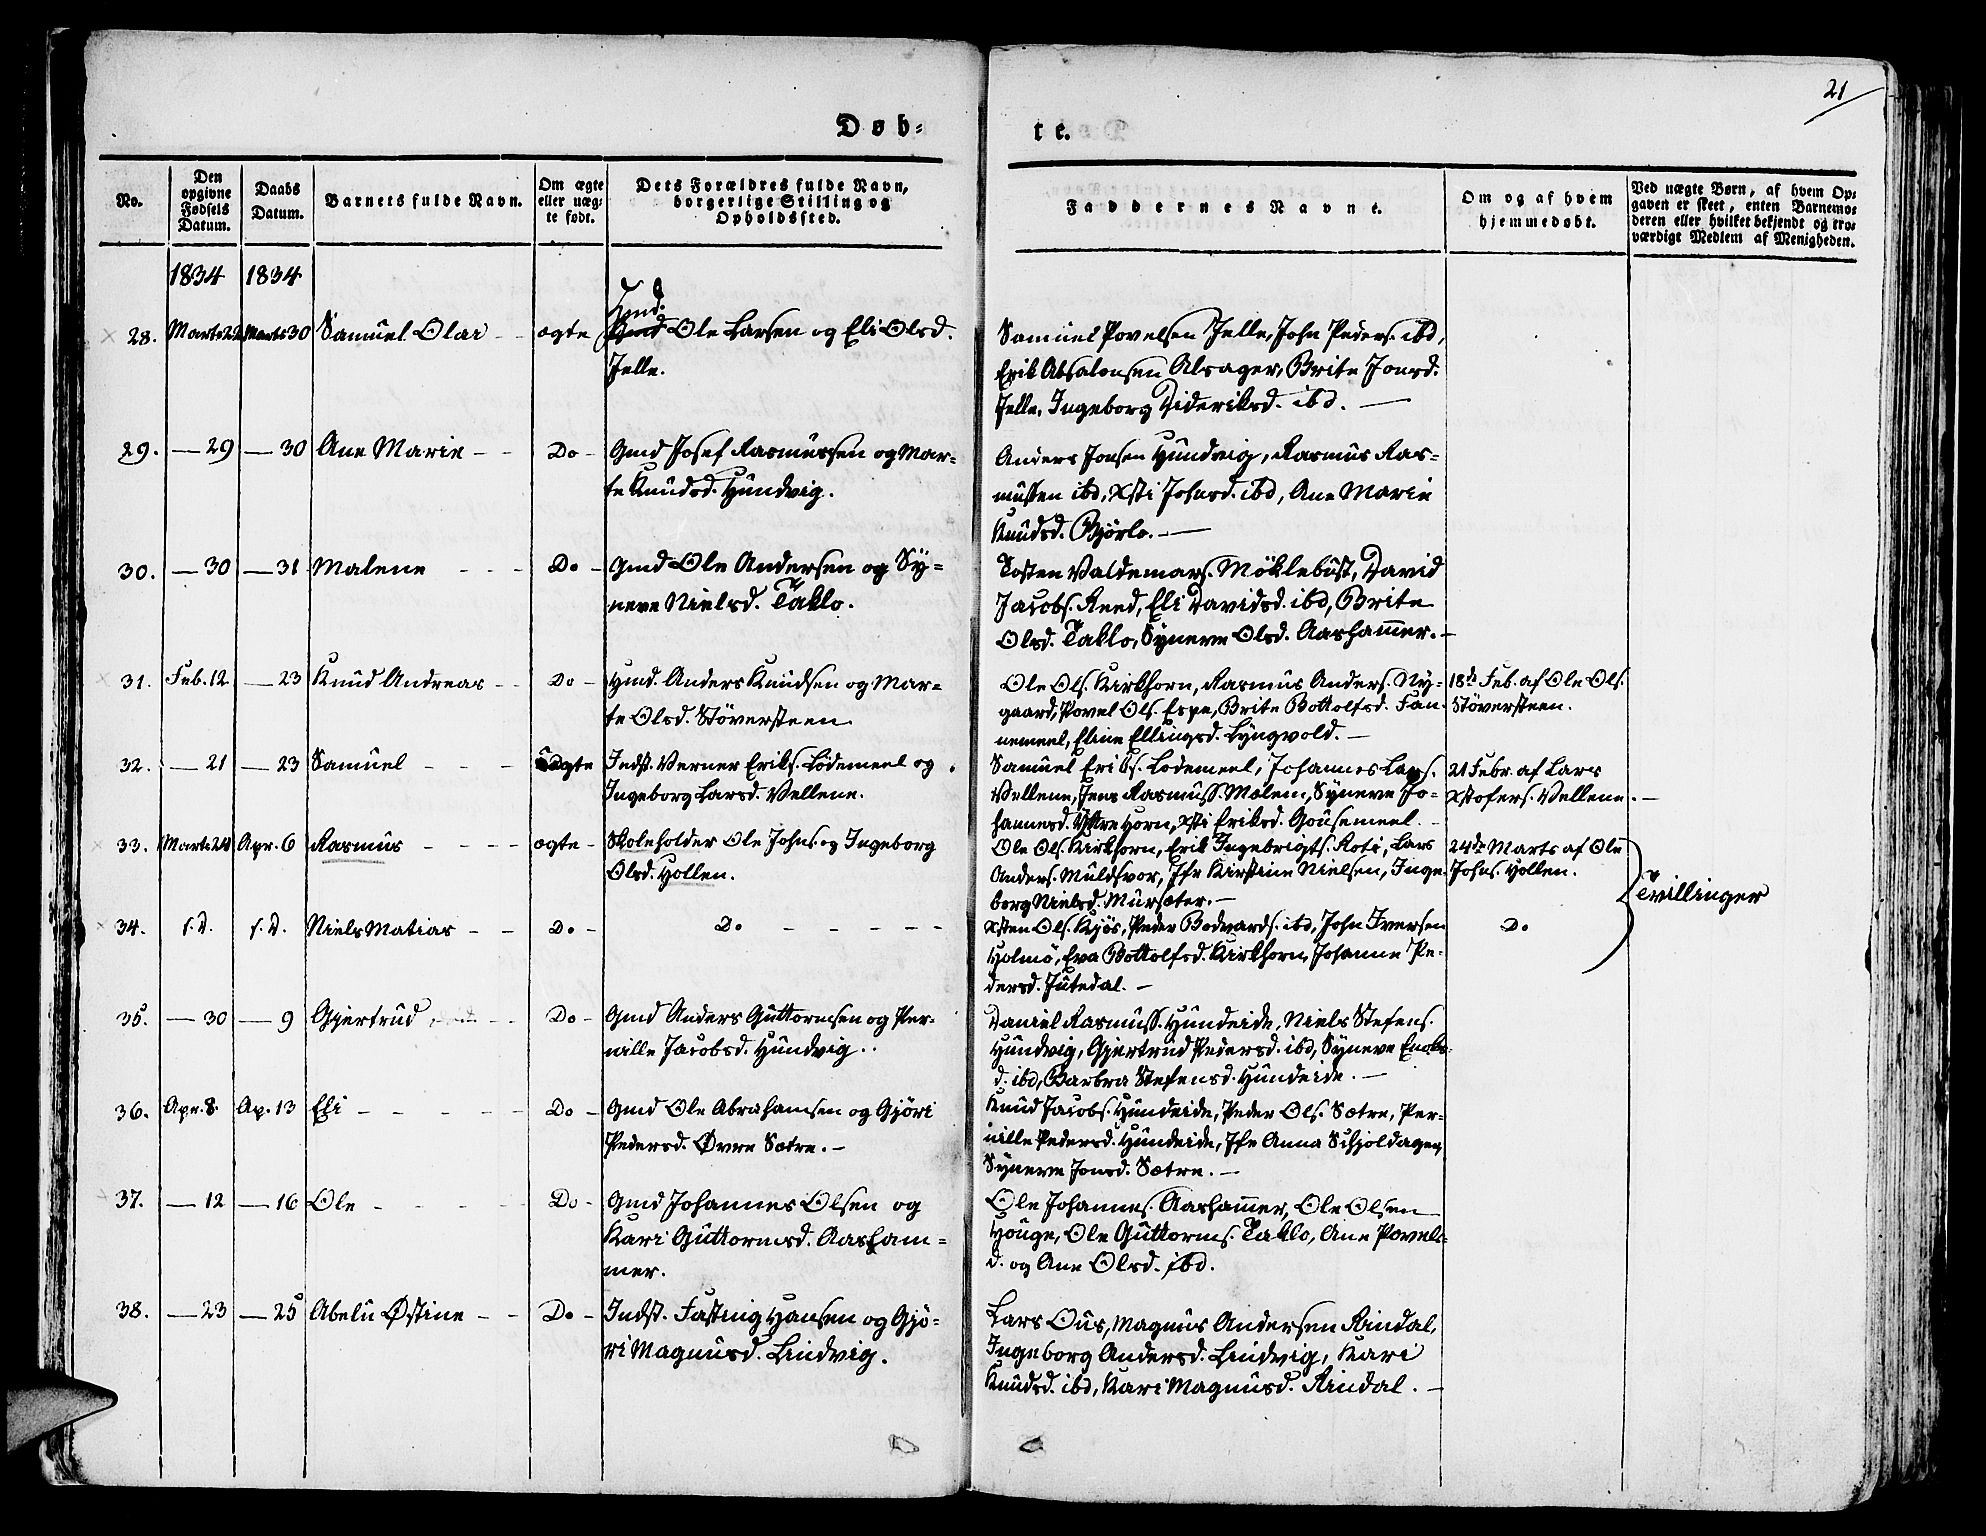 21
Døb-
te.
No.
Den
opgivne
Fødsels
Datum.
Daabs
Datum.
Barnets fulde Navn.
Om ægte
eller uæg-
te født.
Dets Forældres fulde Navn,
borgerlige Stilling og
Opholdssted.
Faddernes Navne.
Om og af hvem
hjemmedøbt.
Ved uægte Børn, af hvem Op-
gaven er skeet, enten Barnemo-
deren eller hvilket bekjendt og tro-
værdigt Medlem af Menigheden.
1834 1834
28. Marts 22 Marts 30 Samuel Olai - - ægte Hmd. Ole Larsen og Eli Olsd.
Jelle.
Samuel Povelsen Jelle, John Peders. ibd,
Erik Absalonsen Alsager, Brite Jonsd.
Jelle, Ingeborg Dideriksd. ibd. —
29. — 29 — 30 Ane Marie - - Do - Gmd Josef Rasmussen og Mar-
te Knudsd. Hundvig.
Anders Jonsen Hundvig, Rasmus Ras-
mussen ibd, Xsti Johnsd. ibd, Ane Marie
Knudsd. Bjørlo. —
30. — 30 — 31 Malene - - - Do - Gmd Ole Andersen og Sy-
neve Nielsd. Taklo.
Tosten Valdemars. Möklebust, David
Jacobs. Reed, Eli Davidsd. ibd, Brite
Olsd. Taklo, Syneve Olsd. Aashammer. -
31. Feb. 12 — 23 Knud Andreas - - Do - Hmd. Anders Knudsen og Mar-
te Olsd. Stöversteen
Ole Ols. Kirkhorn, Rasmus Anders. Ny-
gaard, Povel Ols. Espe, Brite Bottolfsd. Fan-
nemeel, Eline Ellingsd. Lyngvold. —
18de Feb. af Ole Ols.
Stöversteen.
32. — 21 — 23 Samuel - - - uægte Indst. Verner Eriks. Lödemeel og
Ingeborg Larsd. Vellene.
Samuel Eriks. Lodemeel, Johannes Lars.
Vellene, Jens Rasmuss. Mælem, Syneve Jo-
hannesd. Yttre Horn, Xsti Eriksd. Gousemeel. -
21 Febr. af Lars
Xstofers. Vellene. —
33. Marts 24 Apr. 6 Rasmus - - - - ægte - Skoleholder Ole Johns. og Ingeborg
Olsd. Hollen.
Ole Ols. Kirkhorn, Erik Ingebrigts. Roti, Lars
Anders. Muldsvor, Jfr Kirstine Nielsen, Inge-
borg Nielsd. Mursæter. —
24de Marts af Ole
Johns. Hollen.
Tvillinger
34. s. D. s. D. Niels Matias - - Do - Do - - - - -
Xsten Ols. Kjös, Peder Bodvards. ibd, John Iversen
Holmö, Eva Bottolfsd. Kirkhorn, Johanne Pe-
dersd. Jutedal. —
Do
35. — 30 — 9 Gjertrud - - Do - Gmd Anders Guttormsen og Per-
nille Jacobsd. Hundvig.
Daniel Rasmuss. Hundeide, Niels Stefens.
Hundvig, Gjertrud Pedersd. ibd, Syneve Enoks-
d. ibd, Barbra Stefensd. Hundeide. —
36. Apr. 8. Ap. 13 Eli - - - - - Do - Gmd Ole Abrahamsen og Gjöri
Pedersd. Øvre Sætre. —
Knud Jacobs. Hundeide, Peder Ols. Sætre, Per-
nille Pedersd. Hundeide, Jfr Anna Schjoldager,
Syneve Jonsd. Sætre. —
37. — 12 — 16 Ole - - - - - Do - Gmd Johannes Olsen og
Kari Guttormsd. Aasham-
mer.
Ole Johannes. Aashammer, Ole Olsen
Houge, Ole Guttorms. Taklo, Ane Povels-
d. og Ane Olsd. ibd.
38. — 23 — 25 Abelu Østine - - Do - Indst. Fasting Hansen og Gjö-
ri Magnusd. Lindvig.
Lars Ous, Magnus Andersen Rindal,
Ingeborg Andersd. Lindvig, Kari
Knudsd. ibd, Kari Magnusd. Rindal. —